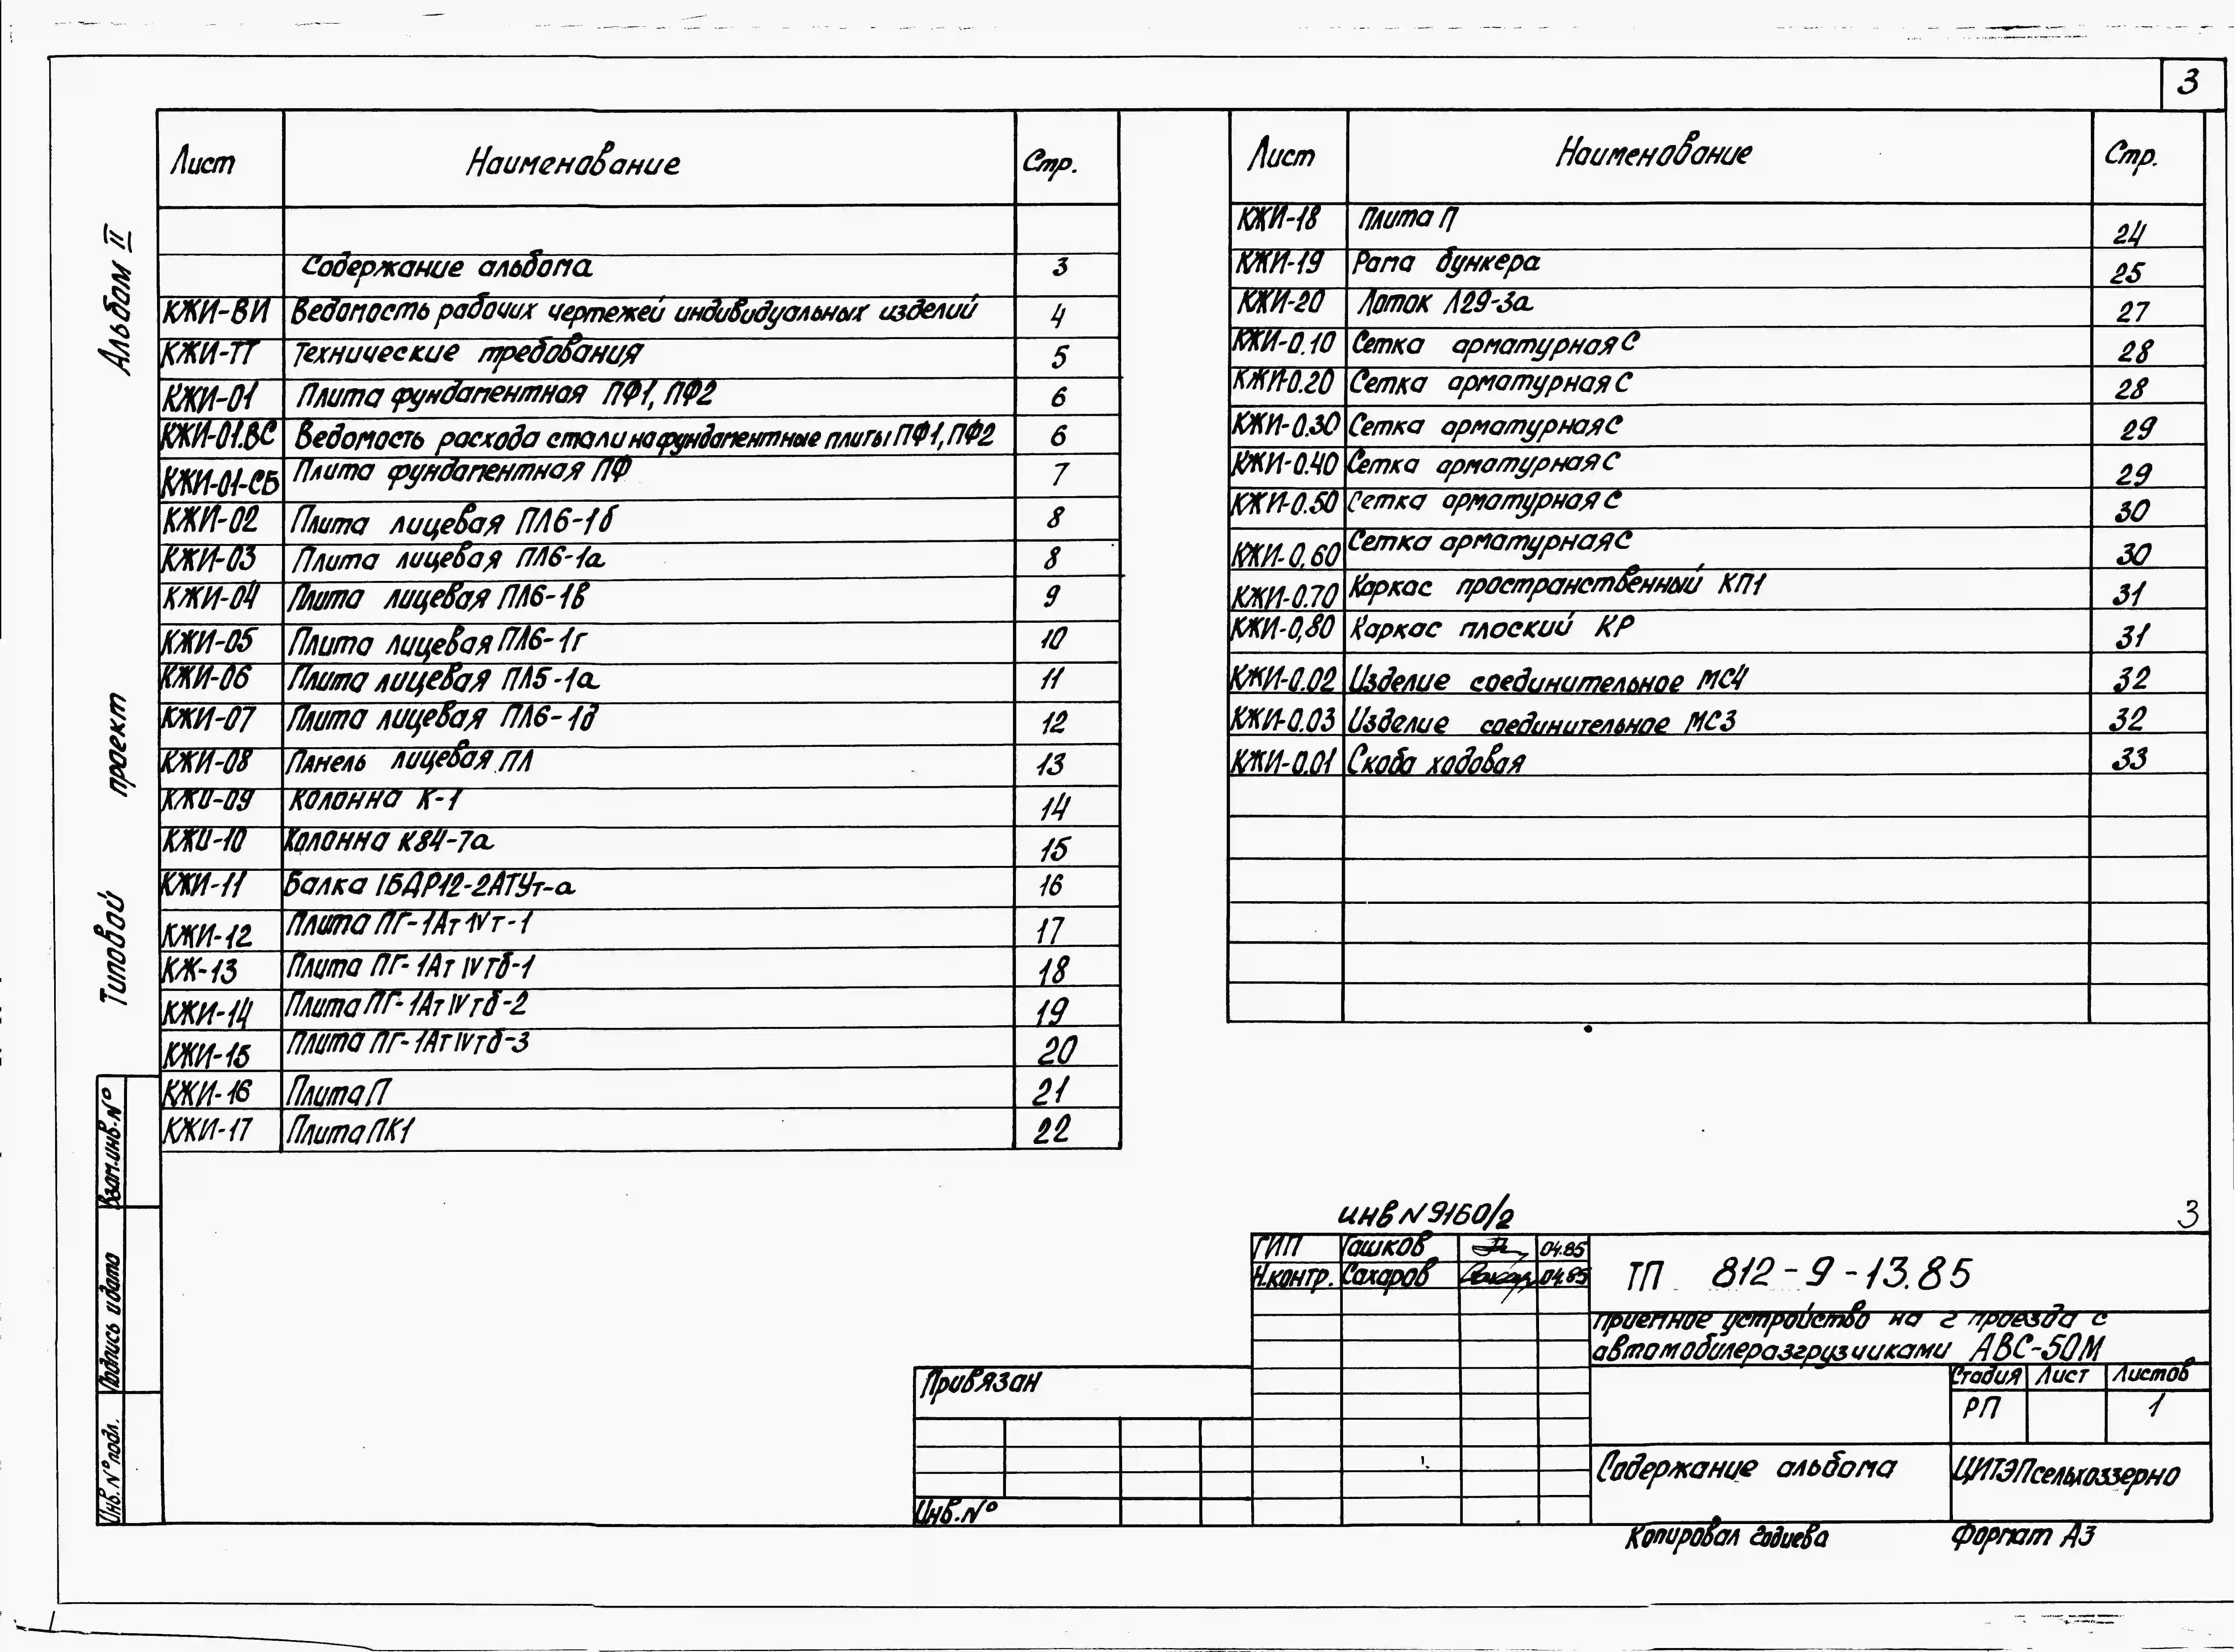 3
Лист Наименование Стр.
Содержание альбома 3
КЖИ-ВИ Ведомость рабочих чертежей индивидуальных изделий 4
КЖИ-ТТ Технические требования 5
КЖИ-01 Плита фундаментная ПФ1, ПФ2 6
КЖИ-01.ВС Ведомость расхода стали на фундаментные плиты ПФ1, ПФ2 6
КЖИ-01-СБ Плита фундаментная ПФ 7
КЖИ-02 Плита лицевая ПЛ6-1б 8
КЖИ-03 Плита лицевая ПЛ6-1а 8
КЖИ-04 Плита лицевая ПЛ6-1в 9
КЖИ-05 Плита лицевая ПЛ6-1г 10
КЖИ-06 Плита лицевая ПЛ5-1а 11
КЖИ-07 Плита лицевая ПЛ6-1д 12
КЖИ-08 Панель лицевая ПЛ 13
КЖИ-09 Колонна К-1 14
КЖИ-10 Колонна К84-7а 15
КЖИ-11 Балка 1БДР12-2АТУт-а 16
КЖИ-12 Плита ПГ-1АтIVт-1 17
КЖ-13 Плита ПГ-1АтIVтб-1 18
КЖИ-14 Плита ПГ-1АтIVтб-2 19
КЖИ-15 Плита ПГ-1АтIVтб-3 20
КЖИ-16 Плита П 21
КЖИ-17 Плита ПК1 22
Лист Наименование Стр.
КЖИ-18 Плита П 24
КЖИ-19 Рама бункера 25
КЖИ-20 Лоток Л29-3а 27
КЖИ-0.10 Сетка арматурная С 28
КЖИ-0.20 Сетка арматурная С 28
КЖИ-0.30 Сетка арматурная С 29
КЖИ-0.40 Сетка арматурная С 29
КЖИ-0.50 Сетка арматурная С 30
КЖИ-0,60 Сетка арматурная С 30
КЖИ-0.70 Каркас пространственный КП1 31
КЖИ-0,80 Каркас плоский КР 31
КЖИ-0.02 Изделие соединительное МС4 32
КЖИ-0.03 Изделие соединительное МС3 32
КЖИ-0.01 Скоба ходовая 33
Альбом II
Типовой проект
Взам.инв.№
Подпись и дата
Инв.№подл.
инв N 9160/2
3
ГИП Гашков 04.85
Н.контр. Сахаров 04.85
ТП 812-9-13.85
Приемное устройство на 2 проезда с
автомобилеразгрузчиками АВС-50М
Привязан
Стадия Лист Листов
РП 1
Содержание альбома
ЦИТЭПсельхоззерно
Инв.№
Копировал Годиева Формат А3